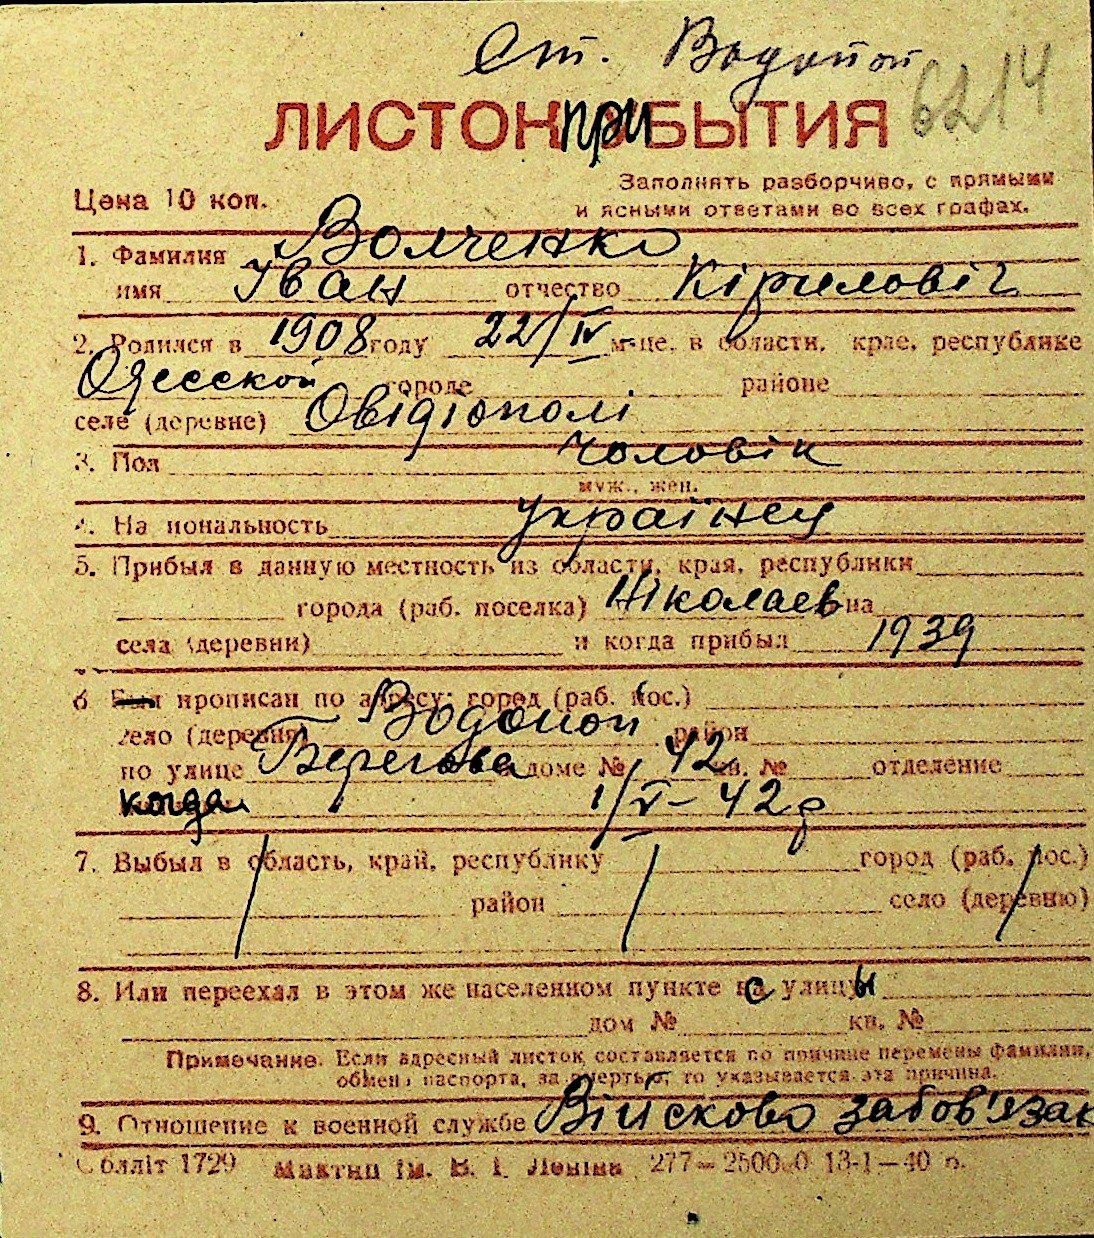 Ст. Водопой
6214
ЛИСТОК ПРИБЫТИЯ
Цена 10 коп.
Заполнять разборчиво, с прямыми
и ясными ответами во всех графах.
1. Фамилия Волченко
имя Іван отчество Кіриловіч
2. Родился в 1908 году 22/IV м-це. в области, крае, республике
Одесской городе районе
селе (деревне) Овідіополі
3. Пол чоловік
муж., жен.
4. Национальность українец
5. Прибыл в данную местность из области, края, республики
города (раб. поселка) Ніколаев на
села (деревни) и когда прибыл 1939
6 Был прописан по адресу: город (раб. пос.)
село (деревня) Водопой район
по улице Берегова в доме № 42 кв. № отделение
когда 1/V-42 р
7. Выбыл в область, край, республику город (раб. пос.)
район село (деревню)
8. Или переехал в этом же населенном пункте с улицы
дом № кв. №
Примечание. Если адресный листок составляется по причине перемены фамилии,
обмена паспорта, за смертью, то указывается эта причина.
9. Отношение к военной службе Військово забов'язак
Облліт 1729 ім. В. І. Леніна 277— 13-1—40 р.